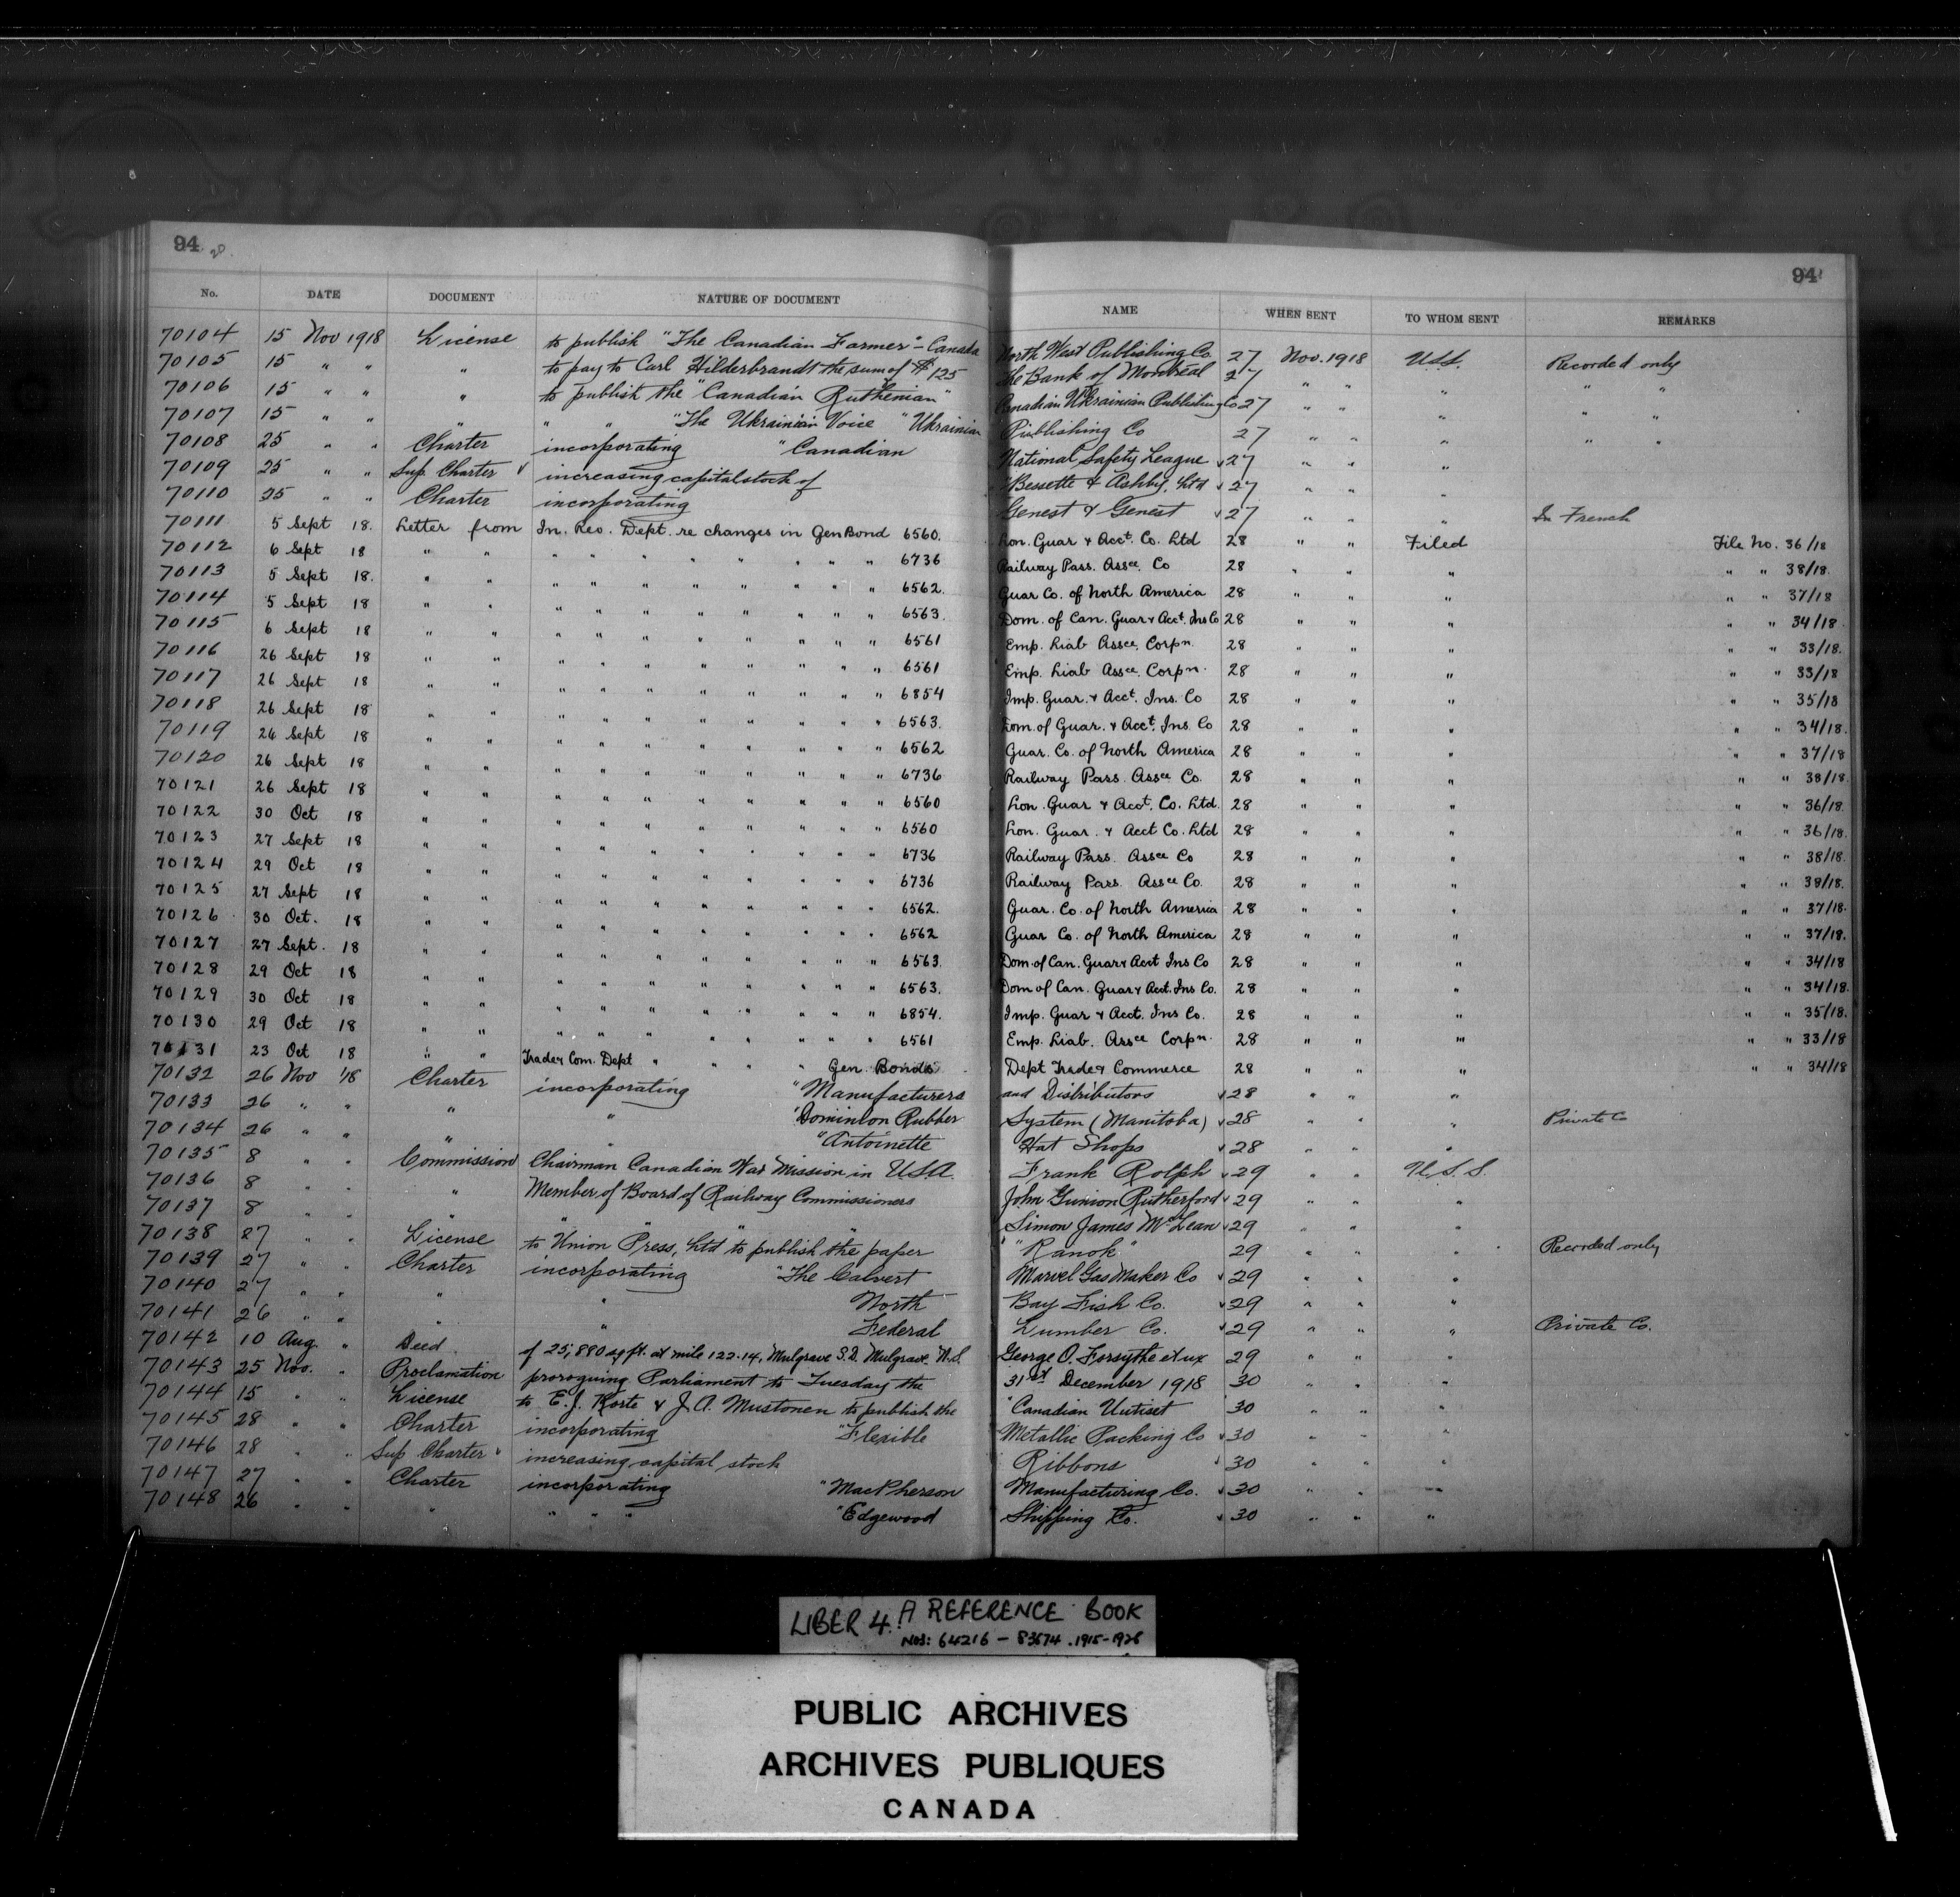 94 20 94
No. DATE DOCUMENT NATURE OF DOCUMENT NAME WHEN SENT TO WHOM SENT REMARKS
70104 15 Nov 1918 License to publish "The Canadian Farmer" - Canada North West Publishing Co 27 Nov. 1918 U.S.S. Recorded only
70105 15 " " " to pay to Carl Hilderbrandt the sum of $125 The Bank of Montreal 27 " " " " "
70106 15 " " " to publish the "Canadian Ruthenian" Canadian Ukrainian Publishing Co 27 " " " " "
70107 15 " " " " " "The Ukrainian Voice" Ukrainian Publishing Co 27 " " " " "
70108 25 " " Charter incorporating "Canadian National Safety League √ 27 " " "
70109 25 " " Sup. Charter √ increasing capital stock of Bessette & Ashby, Ltd √ 27 " " "
70110 25 " " Charter incorporating Genest & Genest √ 27 " " " In French
70111 5 Sept 18. Letter from In. Rev. Dept. re changes in Gen Bond 6560. Lon. Guar & Acct. Co. Ltd 28 " " Filed File No. 36/18
70112 6 Sept 18 " " " " " " " " " " 6736 Railway Pass. Assce. Co 28 " " " " " 38/18.
70113 5 Sept 18. " " " " " " " " " " 6562. Guar Co. of North America 28 " " " " " 37/18
70114 5 Sept 18 " " " " " " " " " " 6563. Dom. of Can. Guar & Acct. Ins Co 28 " " " " " 34/18.
70115 6 Sept 18 " " " " " " " " " " 6561 Emp. Liab Assce. Corpn. 28 " " " " " 33/18.
70116 26 Sept 18 " " " " " " " " " " 6561 Emp. Liab Assce. Corpn. 28 " " " " " 33/18
70117 26 Sept 18 " " " " " " " " " " 6854 Imp. Guar. & Acct. Ins. Co 28 " " " " " 35/18
70118 26 Sept 18 " " " " " " " " " " 6563. Dom. of Guar. & Acct. Ins Co 28 " " " " " 34/18.
70119 26 Sept 18 " " " " " " " " " " 6562 Guar. Co. of North America 28 " " " " " 37/18
70120 26 Sept 18 " " " " " " " " " " 6736 Railway Pass. Assce Co. 28 " " " " " 38/18.
70121 26 Sept 18 " " " " " " " " " " 6560 Lon. Guar & Acct. Co. Ltd. 28 " " " " " 36/18.
70122 30 Oct 18 " " " " " " " " " " 6560 Lon. Guar. & Acct Co. Ltd 28 " " " " " 36/18.
70123 27 Sept 18 " " " " " " " " " " 6736 Railway Pass. Assce Co 28 " " " " " 38/18.
70124 29 Oct 18 " " " " " " " " " " 6736 Railway Pass. Assce Co. 28 " " " " " 38/18.
70125 27 Sept 18 " " " " " " " " " " 6562. Guar. Co. of North America 28 " " " " " 37/18.
70126 30 Oct. 18 " " " " " " " " " " 6562 Guar Co. of North America 28 " " " " " 37/18.
70127 27 Sept. 18 " " " " " " " " " " 6563. Dom. of Can. Guar & Acct Ins Co 28 " " " " " 34/18
70128 29 Oct 18 " " " " " " " " " " 6563. Dom of Can. Guar & Acct. Ins Co. 28 " " " " " 34/18.
70129 30 Oct 18 " " " " " " " " " " 6854. Imp. Guar & Acct. Ins Co. 28 " " " " " 35/18.
70130 29 Oct 18 " " " " " " " " " " 6561 Emp. Liab. Assce Corpn. 28 " " " " " 33/18
70131 23 Oct 18 " " Trade & Com. Dept " " " " Gen. Bonds Dept Trade & Commerce 28 " " " " " 34/18
70132 26 Nov '18 Charter incorporating "Manufacturers and Distributors √ 28 " " "
70133 26 " " " " "Dominion Rubber System (Manitoba) √ 28 " " " Private Co
70134 26 " " " " "Antoinette Hat Shops √ 28 " " "
70135 8 " " Commission Chairman Canadian War Mission in U.S.A. Frank Rolph √ 29 " " U.S.S.
70136 8 " " " Member of Board of Railway Commissioners John Gunion Rutherford √ 29 " " "
70137 8 " " " " " " " Simon James McLean √ 29 " " "
70138 27 " " License to Union Press, Ltd to publish the paper "Ranok" 29 " " " Recorded only
70139 27 " " Charter incorporating "The Calvert Marvel Gas Maker Co √ 29 " " "
70140 27 " " " " North Bay Fish Co. √ 29 " " "
70141 26 " " " " Federal Lumber Co. √ 29 " " " Private Co.
70142 10 Aug. " Deed of 25,880 sq ft. at mile 122.14, Mulgrave S.D. Mulgrave N.S. George O. Forsythe et ux 29 " " "
70143 25 Nov. " Proclamation proroguing Parliament to Tuesday the 31st December 1918 30 " " "
70144 15 " " License to E.J. Korte & J.A. Mustonen to publish the "Canadian Uutiset 30 " " "
70145 28 " " Charter incorporating "Flexible Metallic Packing Co √ 30 " " "
70146 28 " " Sup Charter √ increasing capital stock Ribbons √ 30 " " "
70147 27 " " Charter incorporating "MacPherson Manufacturing Co. √ 30 " " "
70148 26 " " " " " " "Edgewood Shipping Co. √ 30 " " "
LIBER 4. A REFERENCE BOOK
NOS: 64216 - 83674. 1915-1926
PUBLIC ARCHIVES
ARCHIVES PUBLIQUES
CANADA